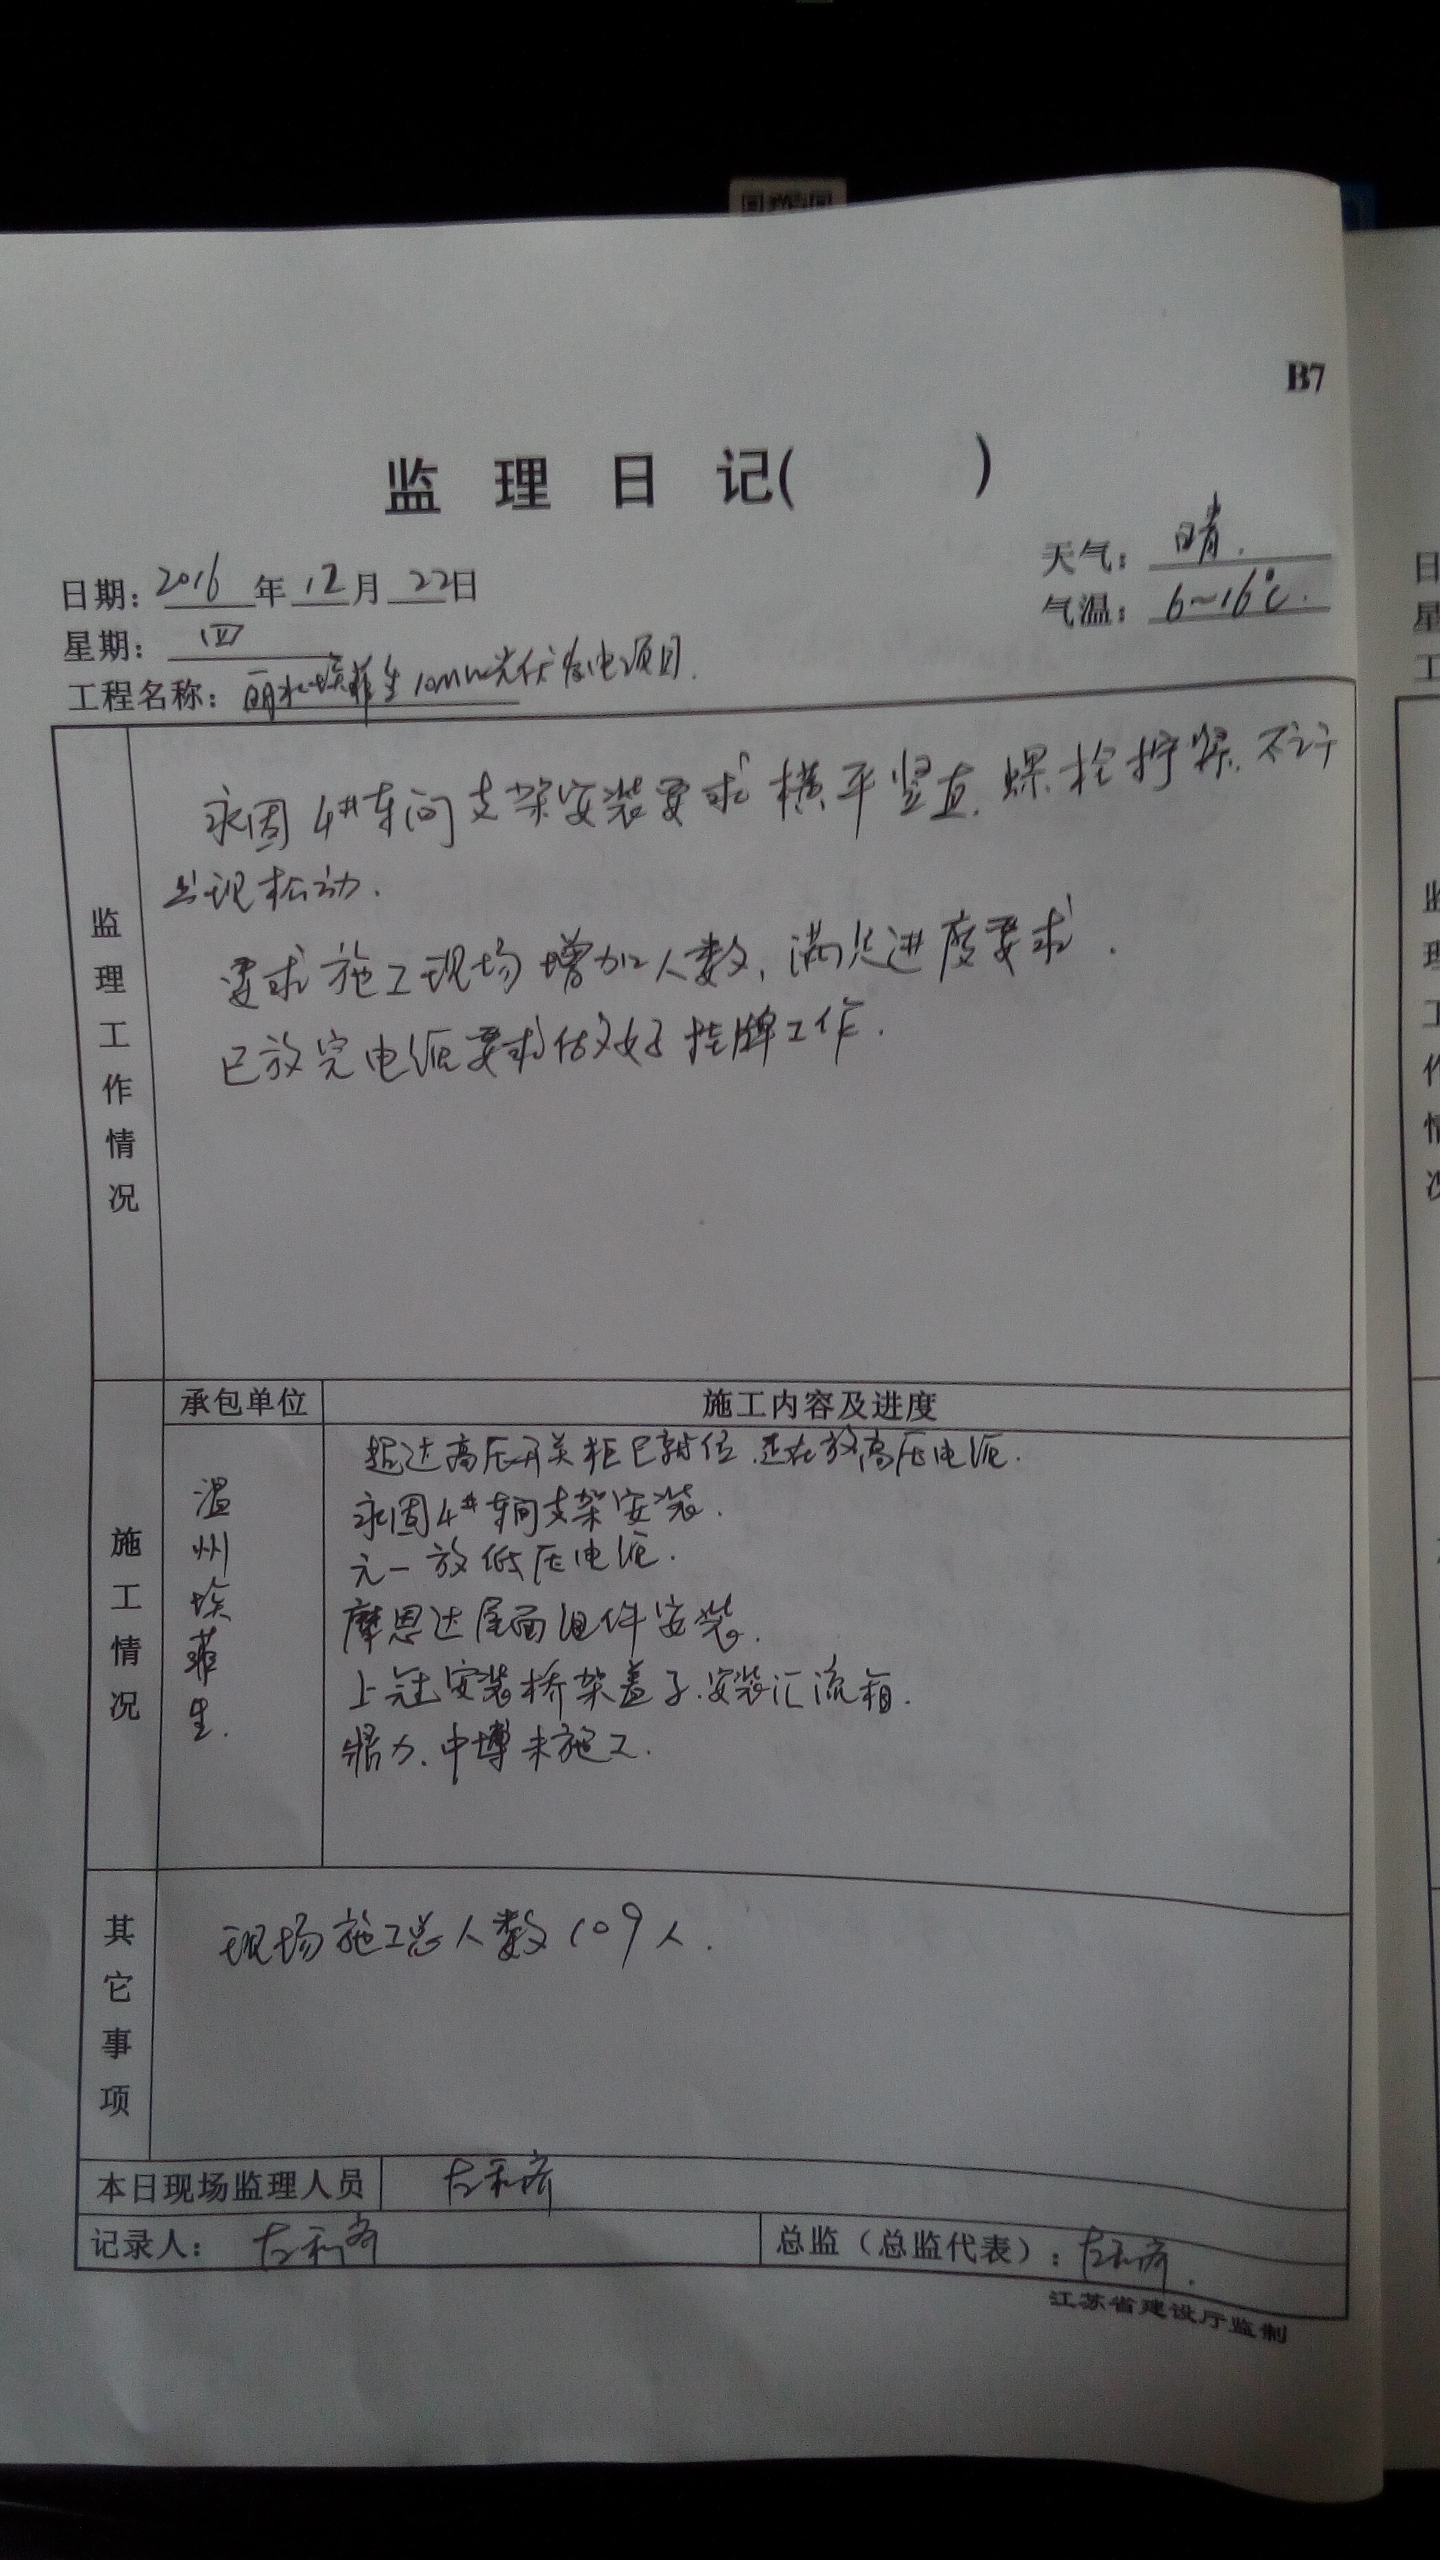 B7
监理日记(          )
日期: 2016 年 12 月 22 日
天气: 晴.
星期: 四
气温: 6~16℃.
工程名称: 丽水埃菲生10MW光伏发电项目.
监理工作情况
永固4#车间支架安装要求横平竖直.螺栓拧紧.不许
出现松动.
要求施工现场增加人数,满足进度要求.
已放完电缆要求做好挂牌工作.
施工情况
承包单位
施工内容及进度
温州埃菲生.
超达高压开关柜已就位.正在放高压电缆.
永固4#车间支架安装.
元一放低压电缆.
摩恩达屋面组件安装.
上冠安装桥架盖子.安装汇流箱.
鼎力.中博未施工.
其它事项
现场施工总人数109人.
本日现场监理人员
记录人:
总监(总监代表):
江苏省建设厅监制